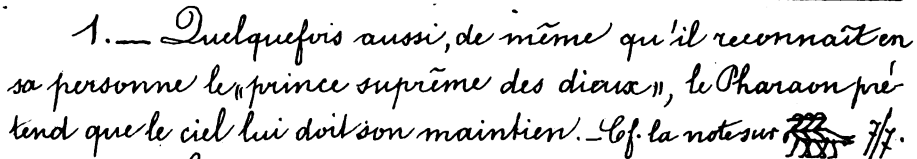 1. — Quelquefois aussi, de même qu'il reconnaît en
sa personne le « prince suprême des dieux », le Pharaon pré-
tend que le ciel lui doit son maintien. — Cf. la note sur 7/7.